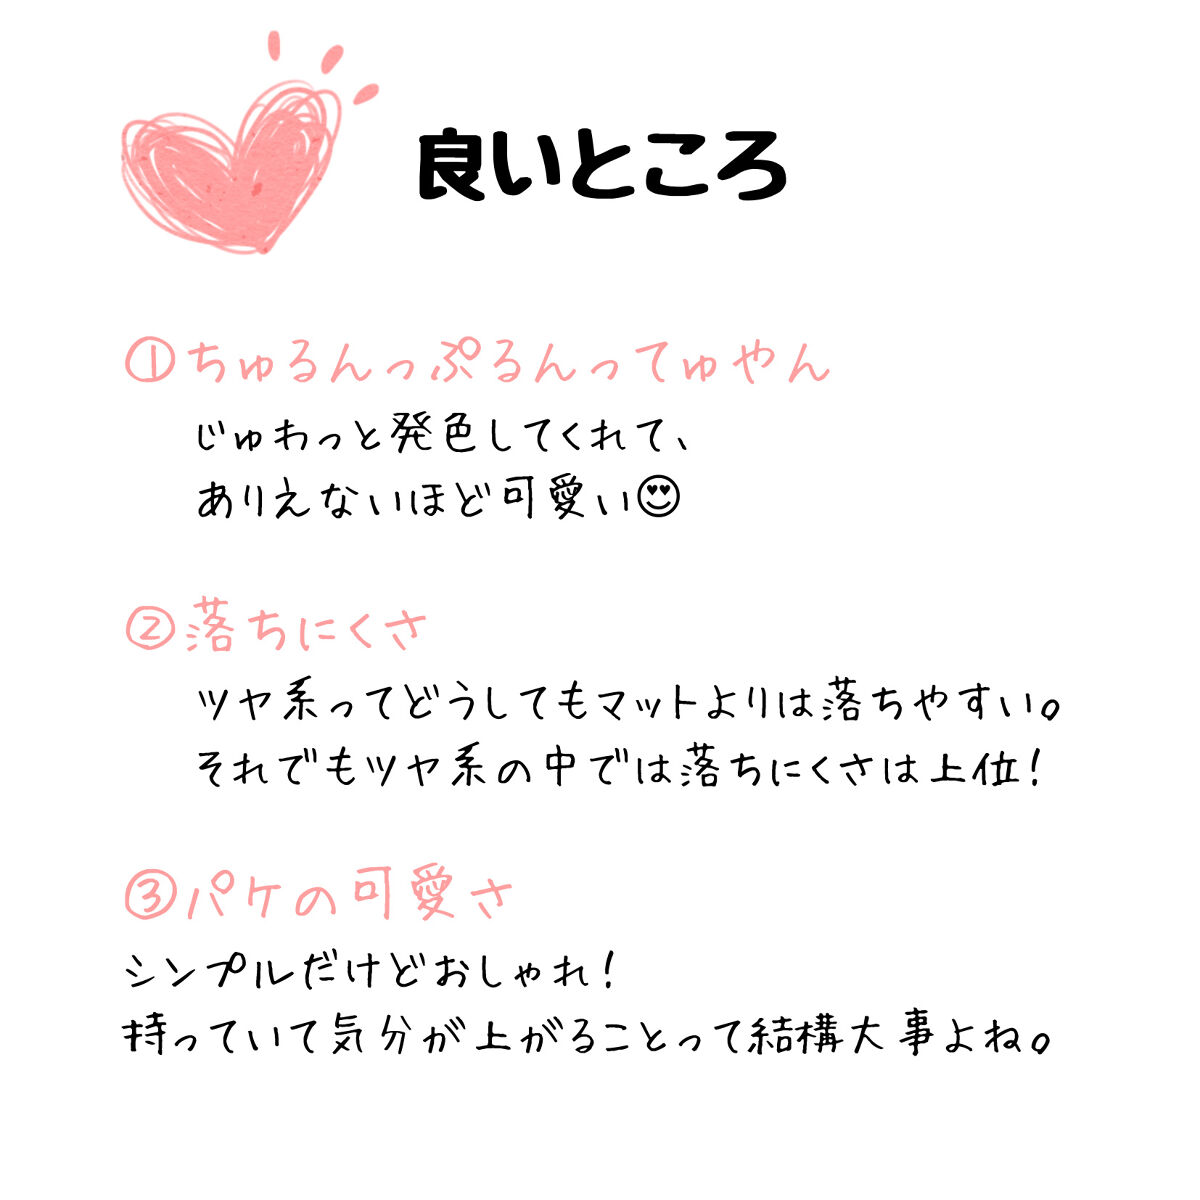 良いところ
①ちゅるんっぷるんってゅやん
じゅわっと発色してくれて、
ありえないほど可愛い😍
②落ちにくさ
ツヤ系ってどうしてもマットよりは落ちやすい。
それでもツヤ系の中では落ちにくさは上位!
③パケの可愛さ
シンプルだけどおしゃれ!
持っていて気分が上がることって結構大事よね。